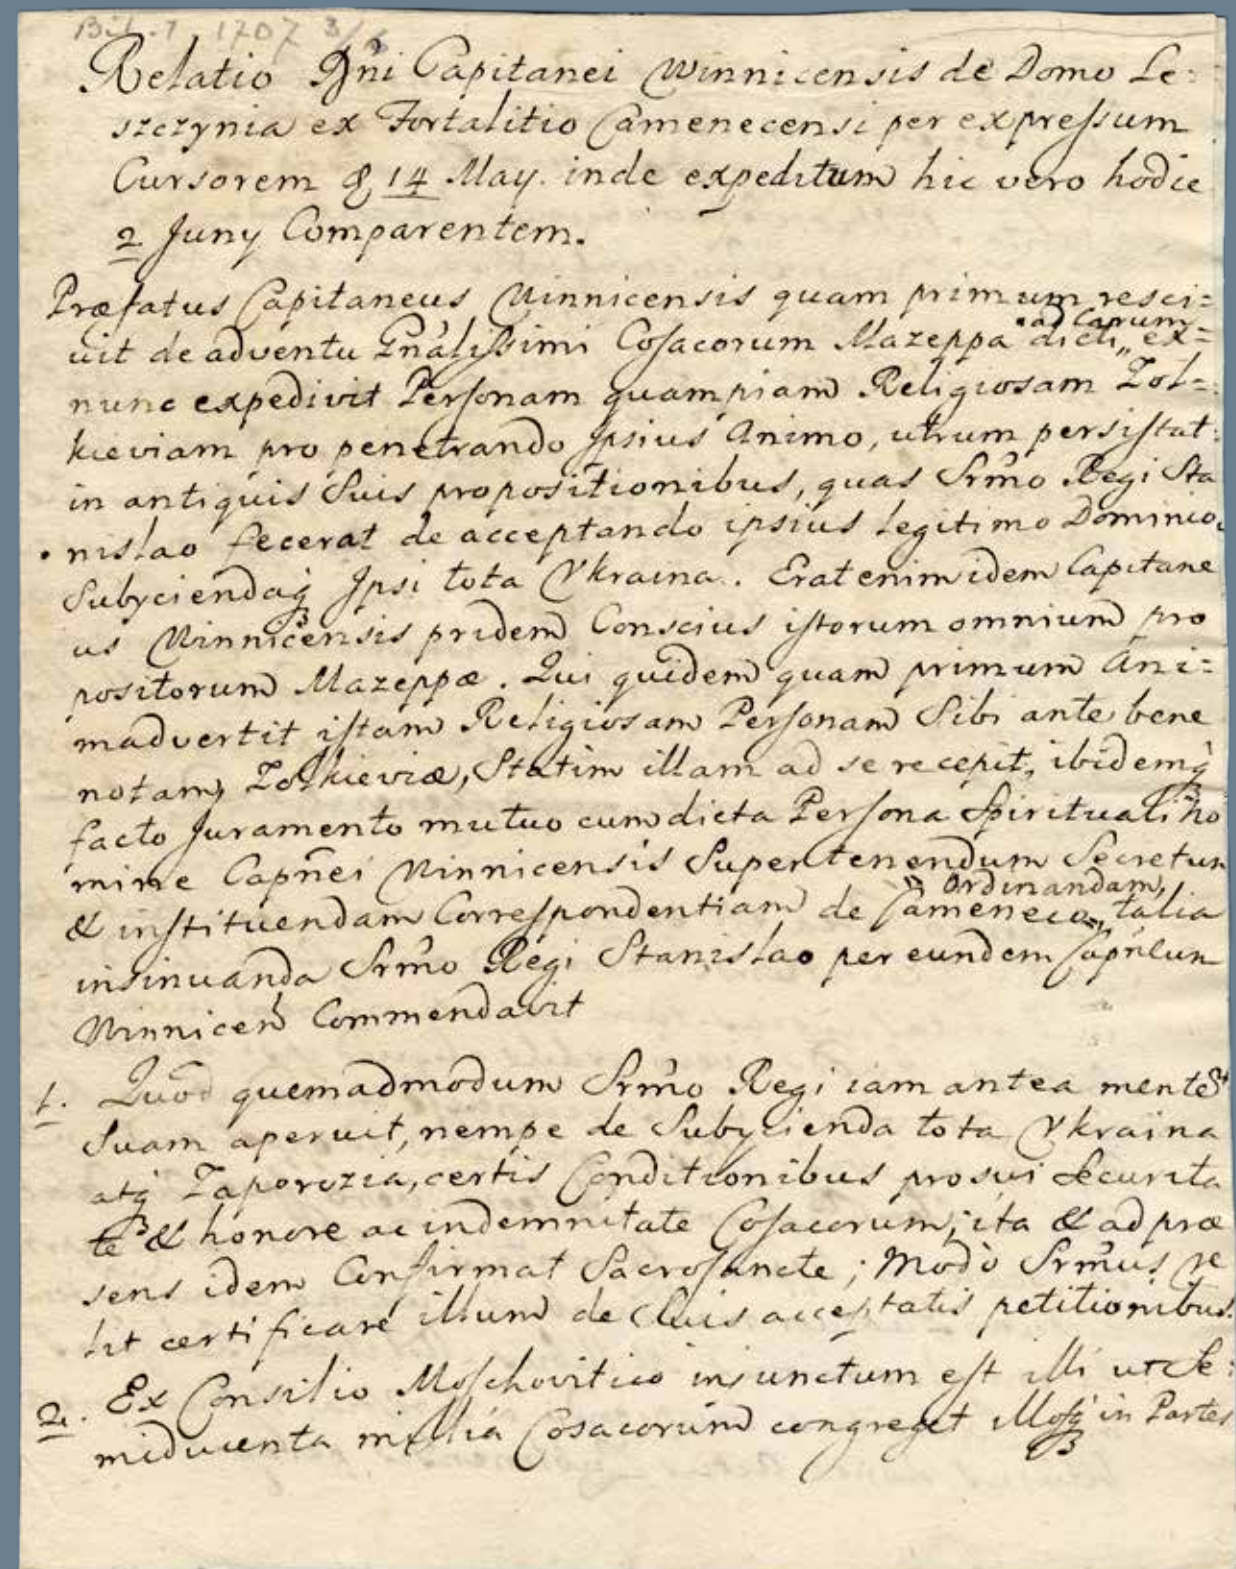 1707 3/6
Relatio Dn̄i Capitanei Winnicensis de Domo Le:
szczynia ex Fortalitio Camenecensi per expressum
Cursorem d. 14 May. inde expeditum hic vero hodie
2 Juny Comparentem.
Præfatus Capitaneus Winnicensis quam primum resci=
vit de adventu Gn̄alissimi Cosacorum Mazeppa dicti „ ex=
ad Carum
nunc expedivit Personam quampiam Religiosam Zol=
kieviam pro penetrando Ipsius Animo, utrum persistat
in antiquis Suis propositionibus, quas Srm̄o Regi Sta
nislao fecerat de acceptando ipsius legitimo Dominio,
Subyciendaq́ꝫ Ipsi tota Vkraina. Erat enim idem Capitane
us Winnicensis pridem Conscius istorum omnium pro
positorum Mazeppæ. Qui quidem quam primum Ani=
madvertit istam Religiosam Personam Sibi ante bene
notam, Zolkieviæ, Statim illam ad se recepit, ibidemq́ꝫ
facto Juramento mutuo cum dicta Persona Spirituali No
mine Capn̄ei Winnicensis Super tenendum Secretum
& instituendam Correspondentiam de Cameneco „ talia
„ Ordinandam,
insinuanda Srm̄o Regi Stanislao per eundem Capn̄eum
Winnicen̄ Commendavit
1. Quod quemadmodum Srm̄o Regi iam antea mentem
Suam aperuit, nempe de Subycienda tota Vkraina
atq́ꝫ Zaporozia, certis Conditionibus pro sui Securita
te & honore ac indemnitate Cosacorum; ita & ad præ
sens idem Confirmat Sacrosancte; Modò Srm̄us ve
lit certificare illum de Suis acceptatis petitionibus.
2. Ex Consilio Moschovitico injunctum est illi ut Se:
miducenta millia Cosacorum congreget illosq́ꝫ in Partes